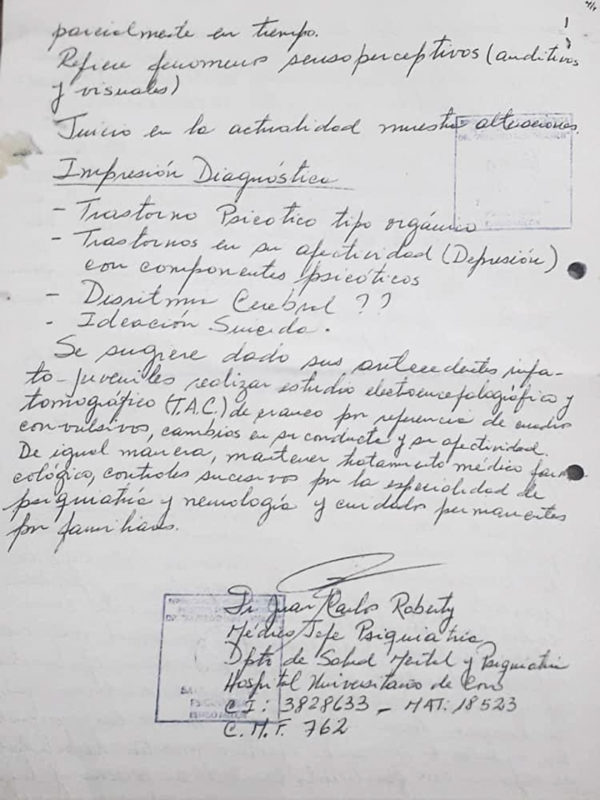 parcialmente en tiempo.
Refiere fenomenos sensoperceptivos (auditivos
y visuales)
Juicio en la actualidad muestra alteraciones.
Impresión Diagnóstica
- Trastorno Psicotico tipo orgánico
- Trastornos en su afectividad (Depresión)
con componentes psicóticos
- Disritmia Cerebral ??
- Ideación Suicida.
Se sugiere dado sus antecedentes infa-
to-juveniles realizar estudio electoencefalográfico y
tomográfico (T.A.C.) de craneo por referencia de
convulsivos, cambios en su conducta y su afectividad.
De igual manera, mantener tratamiento médico farma
cológico, controles sucesivos por la especialidad de
psiquiatría y neurología y cuidados permanentes
por familiares.
Dr Juan Carlos Roberty
Médico Jefe Psiquiatría
Dpto de Salud Mental y Psiquiatría
Hospital Universitario de Coro
C.I: 3828633 - MAT. 18523
C.M.F. 762